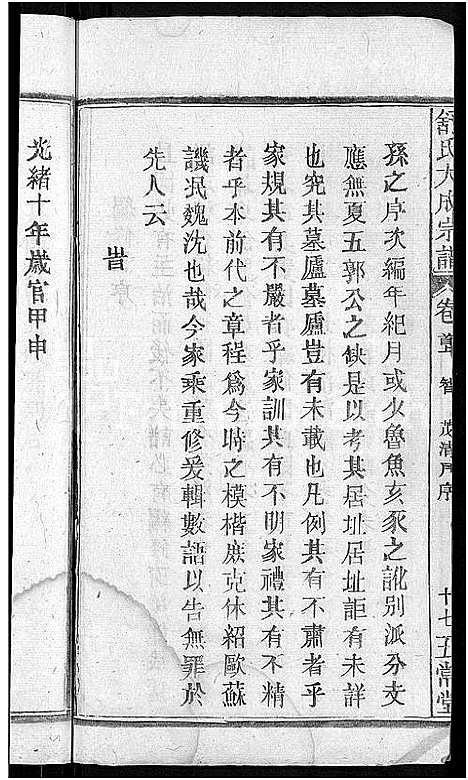 舒氏大成宗譜 卷首 智 茂清戶序 十七 五常堂
孫之序次編年紀月或少魯魚亥豕之訛別派分支
應無夏五郭公之缺是以考其居址居址詎有未詳
也究其墓廬墓廬豈有未載也凡例其有不肅者乎
家規其有不嚴者乎家訓其有不明家禮其有不精
者乎本前代之章程爲今時之模楷庶克休紹歐蘇
譏泯魏沈也哉今家乘重修爰輯數語以告無罪於
先人云
旹
光緒十年歲官甲申